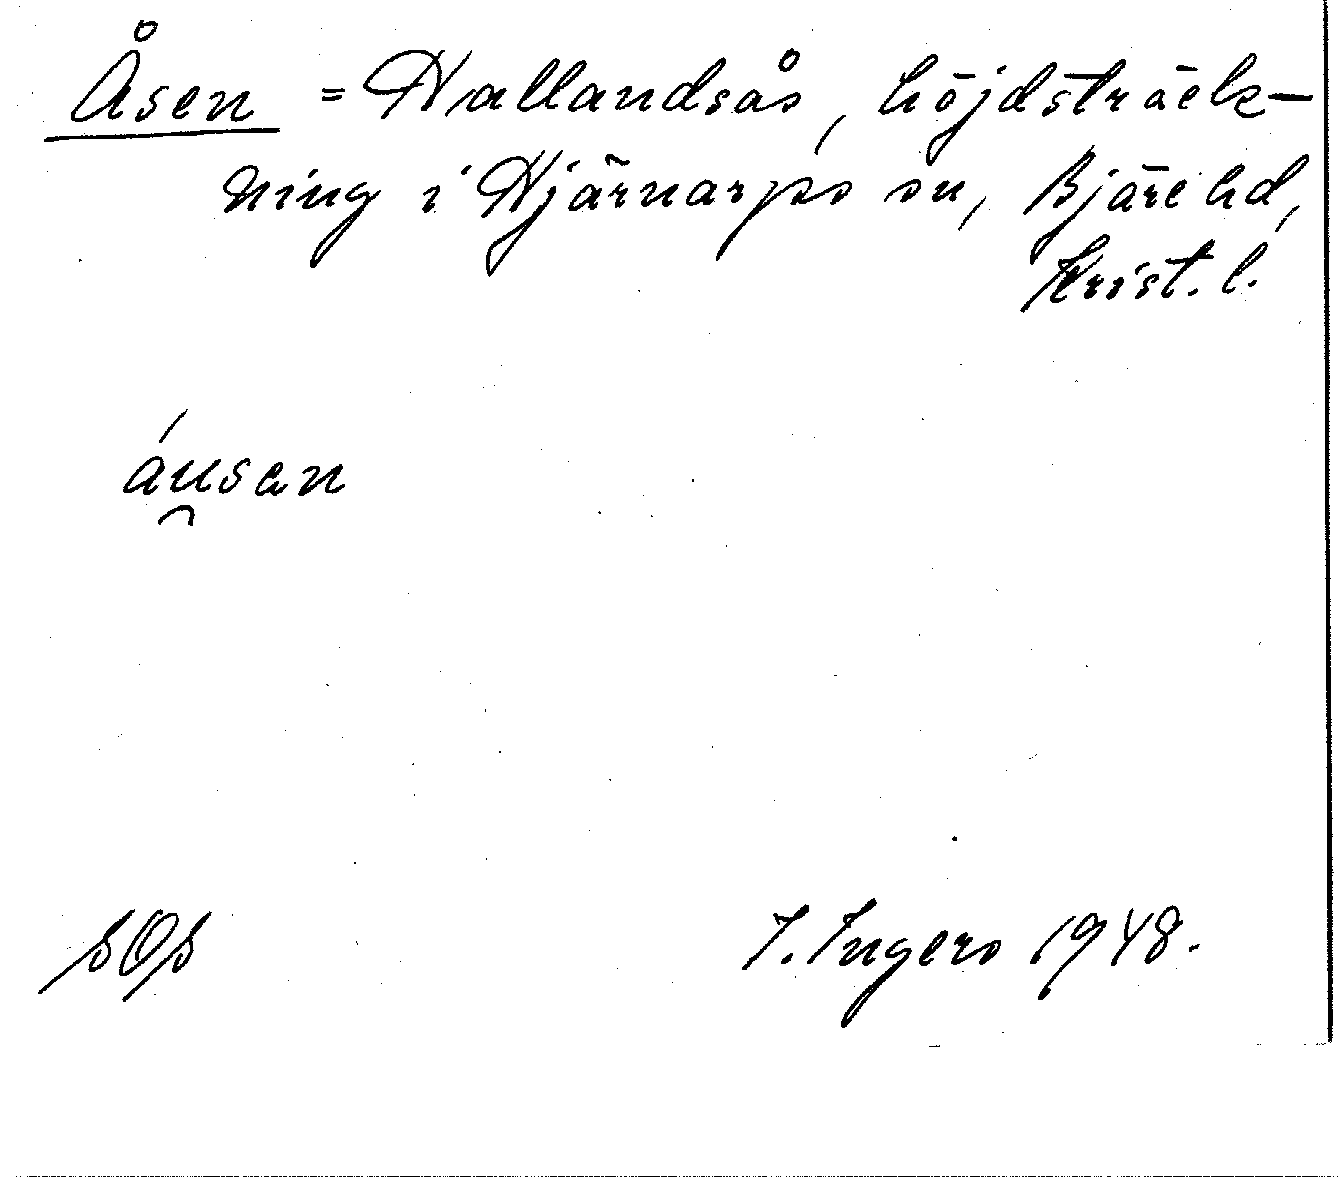 Åsen = Hallandsås, höjdsträck-
ning i Hjärnarps sn, Bjäre hd,
Krist. l.
áu̯sen
SOS I. Ingers 1948.